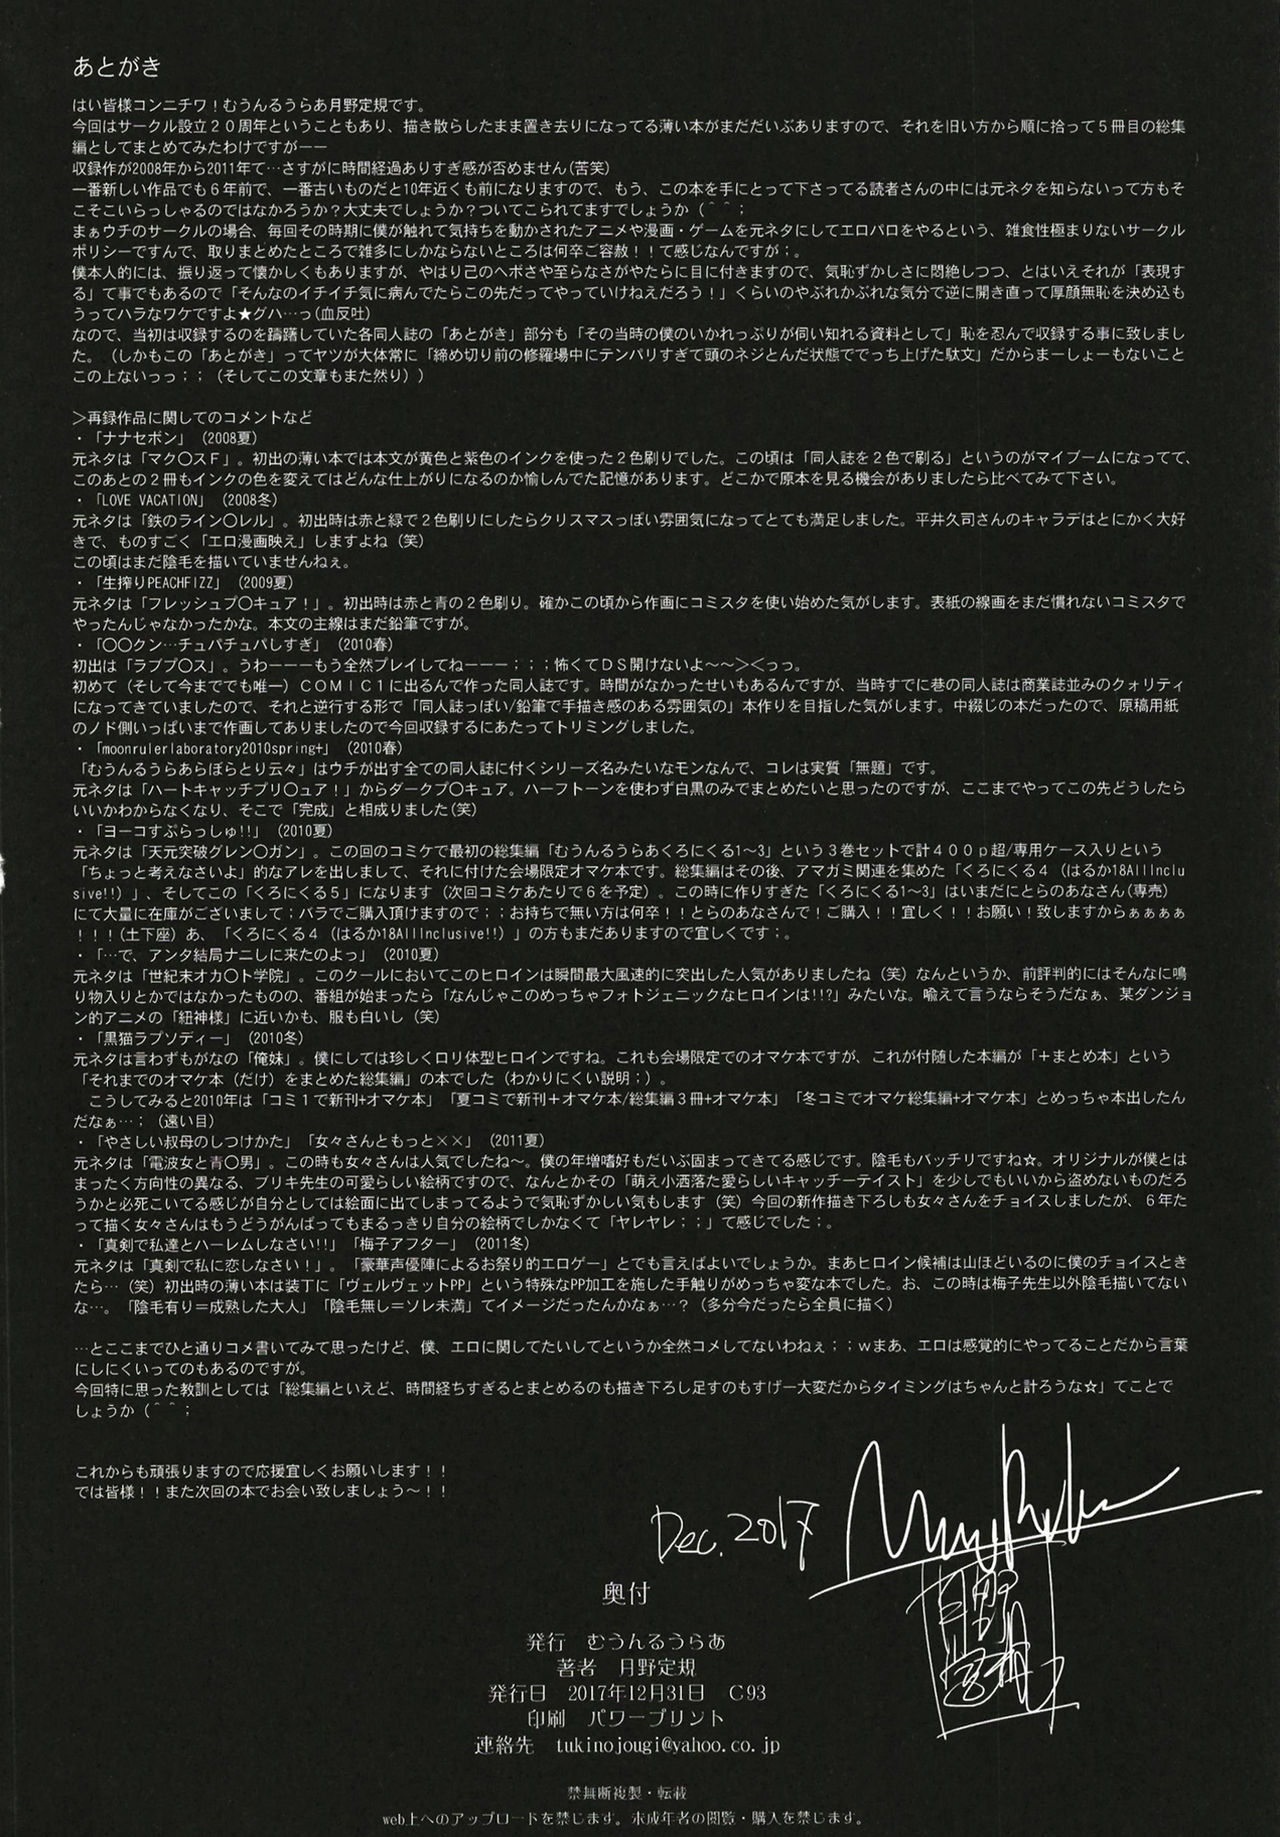 あとがき
はい皆様コンニチワ！むうんるうらあ月野定規です。
今回はサークル設立２０周年ということもあり、描き散らしたまま置き去りになってる薄い本がまだだいぶありますので、それを旧い方から順に拾って５冊目の総集
編としてまとめてみたわけですが――
収録作が2008年から2011年て…さすがに時間経過ありすぎ感が否めません(苦笑)
一番新しい作品でも６年前で、一番古いものだと10年近くも前になりますので、もう、この本を手にとって下さってる読者さんの中には元ネタを知らないって方もそ
こそこいらっしゃるのではなかろうか？大丈夫でしょうか？ついてこられてますでしょうか（＾＾；
まぁウチのサークルの場合、毎回その時期に僕が触れて気持ちを動かされたアニメや漫画・ゲームを元ネタにしてエロパロをやるという、雑食性極まりないサークル
ポリシーですんで、取りまとめたところで雑多にしかならないところは何卒ご容赦！！て感じなんですが；。
僕本人的には、振り返って懐かしくもありますが、やはり己のヘボさや至らなさがやたらに目に付きますので、気恥ずかしさに悶絶しつつ、とはいえそれが「表現す
る」て事でもあるので「そんなのイチイチ気に病んでたらこの先だってやっていけねえだろう！」くらいのやぶれかぶれな気分で逆に開き直って厚顔無恥を決め込も
うってハラなワケですよ★グハ…っ(血反吐)
なので、当初は収録するのを躊躇していた各同人誌の「あとがき」部分も「その当時の僕のいかれっぷりが伺い知れる資料として」恥を忍んで収録する事に致しまし
た。（しかもこの「あとがき」ってヤツが大体常に「締め切り前の修羅場中にテンパリすぎて頭のネジとんだ状態ででっち上げた駄文」だからまーしょーもないこと
この上ないっっ；；（そしてこの文章もまた然り））
＞再録作品に関してのコメントなど
・「ナナセボン」（2008夏）
元ネタは「マク〇スＦ」。初出の薄い本では本文が黄色と紫色のインクを使った２色刷りでした。この頃は「同人誌を２色で刷る」というのがマイブームになってて、
このあとの２冊もインクの色を変えてはどんな仕上がりになるのか愉しんでた記憶があります。どこかで原本を見る機会がありましたら比べてみて下さい。
・「LOVE VACATION」（2008冬）
元ネタは「鉄のライン〇レル」。初出時は赤と緑で２色刷りにしたらクリスマスっぽい雰囲気になってとても満足しました。平井久司さんのキャラデはとにかく大好
きで、ものすごく「エロ漫画映え」しますよね（笑）
この頃はまだ陰毛を描いていませんねぇ。
・「生搾りPEACHFIZZ」（2009夏）
元ネタは「フレッシュプ〇キュア！」。初出時は赤と青の２色刷り。確かこの頃から作画にコミスタを使い始めた気がします。表紙の線画をまだ慣れないコミスタで
やったんじゃなかったかな。本文の主線はまだ鉛筆ですが。
・「〇〇クン…チュパチュパしすぎ」（2010春）
初出は「ラブプ〇ス」。うわーーーもう全然プレイしてねーーー；；；怖くてＤＳ開けないよ～～＞＜っっ。
初めて（そして今まででも唯一）ＣＯＭＩＣ１に出るんで作った同人誌です。時間がなかったせいもあるんですが、当時すでに巷の同人誌は商業誌並みのクォリティ
になってきていましたので、それと逆行する形で「同人誌っぽい/鉛筆で手描き感のある雰囲気の」本作りを目指した気がします。中綴じの本だったので、原稿用紙
のノド側いっぱいまで作画してありましたので今回収録するにあたってトリミングしました。
・「moonrulerlaboratory2010spring+」（2010春）
「むうんるうらあらぼらとり云々」はウチが出す全ての同人誌に付くシリーズ名みたいなモンなんで、コレは実質「無題」です。
元ネタは「ハートキャッチプリ〇ュア！」からダークプ〇キュア。ハーフトーンを使わず白黒のみでまとめたいと思ったのですが、ここまでやってこの先どうしたら
いいかわからなくなり、そこで「完成」と相成りました(笑)
・「ヨーコすぷらっしゅ!!」（2010夏）
元ネタは「天元突破グレン〇ガン」。この回のコミケで最初の総集編「むうんるうらあくろにくる1～3」という３巻セットで計４００ｐ超/専用ケース入りという
「ちょっと考えなさいよ」的なアレを出しまして、それに付けた会場限定オマケ本です。総集編はその後、アマガミ関連を集めた「くろにくる４（はるか18AllInclu
sive!!）」、そしてこの「くろにくる５」になります（次回コミケあたりで６を予定）。この時に作りすぎた「くろにくる1～3」はいまだにとらのあなさん(専売)
にて大量に在庫がございまして；バラでご購入頂けますので；；お持ちで無い方は何卒！！とらのあなさんで！ご購入！！宜しく！！お願い！致しますからぁぁぁぁ
！！！(土下座）あ、「くろにくる４（はるか18AllInclusive!!）」の方もまだありますので宜しくです；。
・「…で、アンタ結局ナニしに来たのよっ」（2010夏）
元ネタは「世紀末オカ〇ト学院」。このクールにおいてこのヒロインは瞬間最大風速的に突出した人気がありましたね（笑）なんというか、前評判的にはそんなに鳴
り物入りとかではなかったものの、番組が始まったら「なんじゃこのめっちゃフォトジェニックなヒロインは!!?」みたいな。喩えて言うならそうだなぁ、某ダンジョ
ン的アニメの「紐神様」に近いかも、服も白いし（笑）
・「黒猫ラプソディー」（2010冬）
元ネタは言わずもがなの「俺妹」。僕にしては珍しくロリ体型ヒロインですね。これも会場限定でのオマケ本ですが、これが付随した本編が「＋まとめ本」という
「それまでのオマケ本（だけ）をまとめた総集編」の本でした（わかりにくい説明；）。
　こうしてみると2010年は「コミ１で新刊+オマケ本」「夏コミで新刊＋オマケ本/総集編３冊+オマケ本」「冬コミでオマケ総集編+オマケ本」とめっちゃ本出したん
だなぁ…；（遠い目）
・「やさしい叔母のしつけかた」「女々さんともっと××」（2011夏）
元ネタは「電波女と青〇男」。この時も女々さんは人気でしたね～。僕の年増嗜好もだいぶ固まってきてる感じです。陰毛もバッチリですね☆。オリジナルが僕とは
まったく方向性の異なる、ブリキ先生の可愛らしい絵柄ですので、なんとかその「萌え小洒落た愛らしいキャッチーテイスト」を少しでもいいから盗めないものだろ
うかと必死こいてる感じが自分としては絵面に出てしまってるようで気恥ずかしい気もします（笑）今回の新作描き下ろしも女々さんをチョイスしましたが、６年た
って描く女々さんはもうどうがんばってもまるっきり自分の絵柄でしかなくて「ヤレヤレ；；」て感じでした；。
・「真剣で私達とハーレムしなさい!!」「梅子アフター」（2011冬）
元ネタは「真剣で私に恋しなさい！」。「豪華声優陣によるお祭り的エロゲー」とでも言えばよいでしょうか。まあヒロイン候補は山ほどいるのに僕のチョイスとき
たら…（笑）初出時の薄い本は装丁に「ヴェルヴェットPP」という特殊なPP加工を施した手触りがめっちゃ変な本でした。お、この時は梅子先生以外陰毛描いてない
な…。「陰毛有り＝成熟した大人」「陰毛無し＝ソレ未満」てイメージだったんかなぁ…？（多分今だったら全員に描く）
…とここまでひと通りコメ書いてみて思ったけど、僕、エロに関してたいしてというか全然コメしてないわねぇ；；ｗまあ、エロは感覚的にやってることだから言葉
にしにくいってのもあるのですが。
今回特に思った教訓としては「総集編といえど、時間経ちすぎるとまとめるのも描き下ろし足すのもすげー大変だからタイミングはちゃんと計ろうな☆」てことで
しょうか（＾＾；
これからも頑張りますので応援宜しくお願いします！！
では皆様！！また次回の本でお会い致しましょう～！！
Dec. 2017
月野定規
奥付
発行　むうんるうらあ
著者　月野定規
発行日　2017年12月31日　Ｃ93
印刷　パワープリント
連絡先　tukinojougi@yahoo.co.jp
禁無断複製・転載
web上へのアップロードを禁じます。未成年者の閲覧・購入を禁じます。